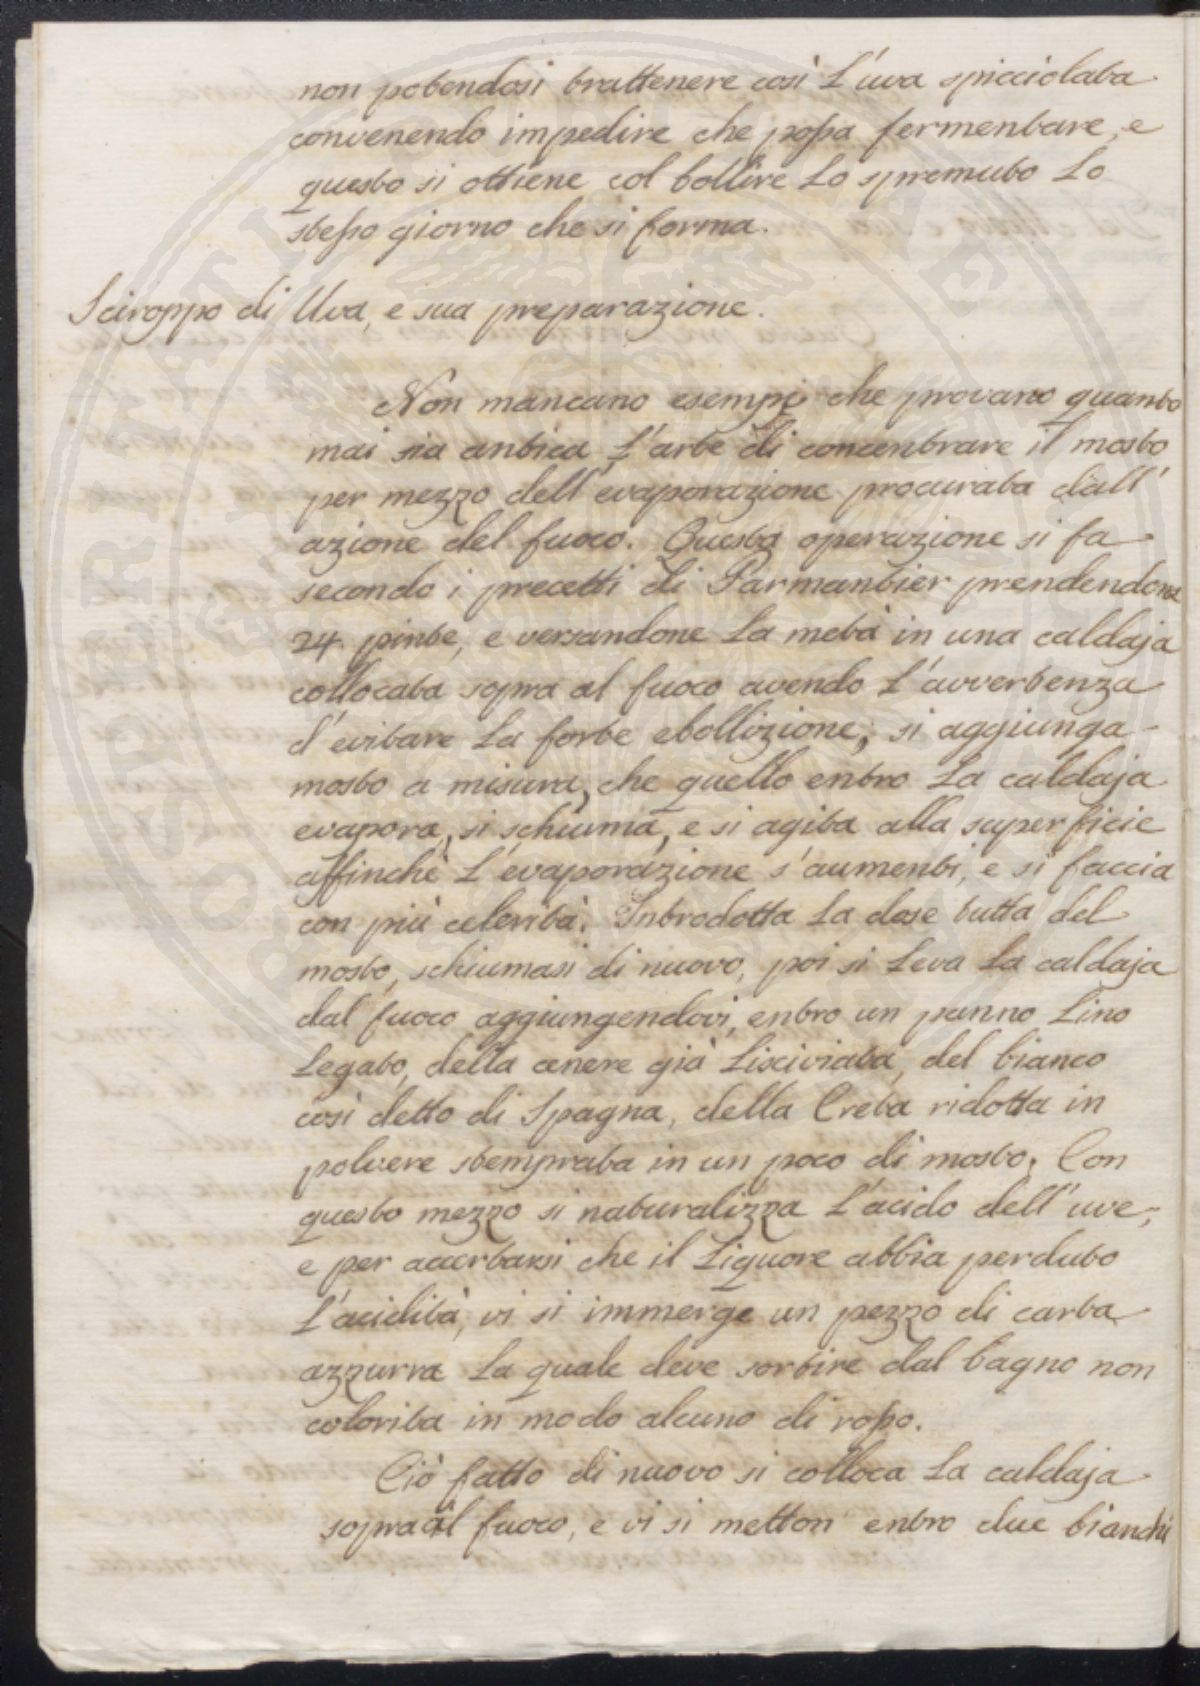 non potendosi trattenere così l'uva spicciolata
convenendo impedire che possa fermentare, e
questo si ottiene col bollire lo spremuto lo
stesso giorno che si forma.
Sciroppo di Uva, e sua preparazione.
Non mancano esempj che provano quanto
mai sia antica l'arte di concentrare il mosto
per mezzo dell'evaporazione procurata dall'
azione del fuoco. Questa operazione si fa
secondo i precetti di Parmantier prendendone
24. pinte, e versandone la metà in una caldaja
collocata sopra al fuoco avendo l'avvertenza
d'evitare la forte ebollizione; si aggiunga
mosto a misura, che quello entro la caldaja
evapora, si schiuma, e si agita alla superficie
affinchè l'evaporazione s'aumenti, e si faccia
con più celerità. Introdotta la dose tutta del
mosto, schiumasi di nuovo, poi si leva la caldaja
dal fuoco aggiungendovi, entro un panno lino
legato, della cenere già lisciviata, del bianco
così detto di Spagna, della Creta ridotta in
polvere stemprata in un poco di mosto. Con
questo mezzo si naturalizza l'acido dell'uve;
e per accertarsi che il liquore abbia perduto
l'acidità, vi si immerge un pezzo di carta
azzurra la quale deve sortire dal bagno non
colorita in modo alcuno di rosso.
Ciò fatto di nuovo si colloca la caldaja
sopra il fuoco, e vi si metton entro due bianchi